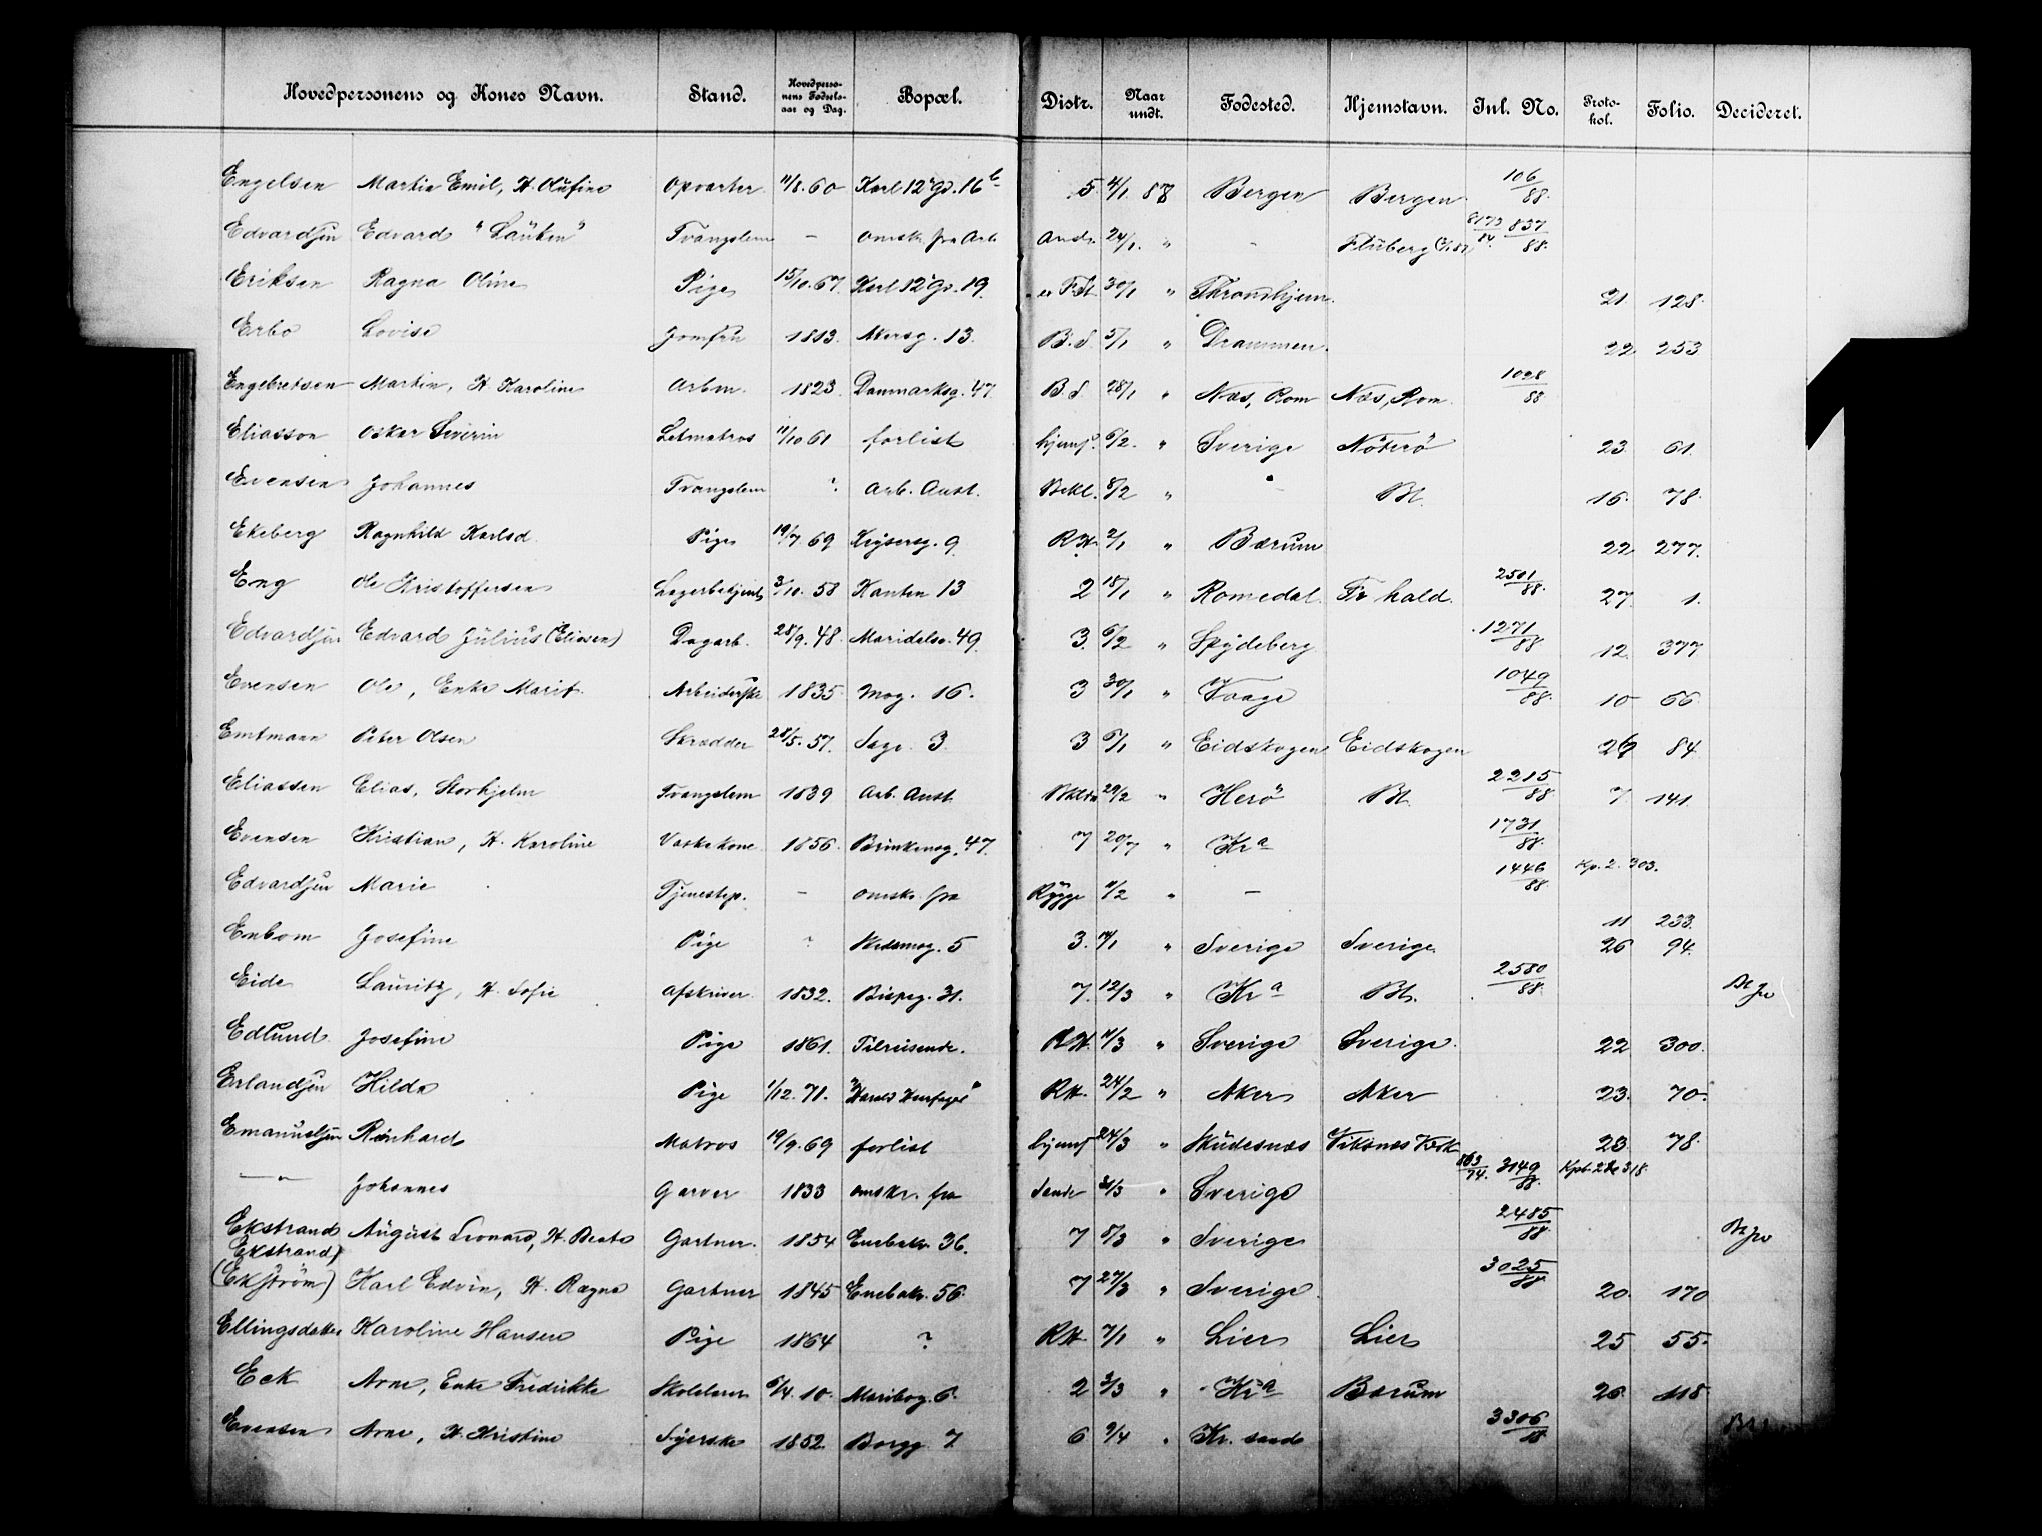 Hovedpersonens og Kones Navn. Stand. Hovedperso-nens Fødsels-aar og Dag. Bopæl. Distr. Naar undt. Fødested. Hjemstavn. Inl. No. Proto-kol. Folio. Decideret.
Engelsen Martin Emil, H. Olufine Opvarter 11/8. 60 Karl 12' Gd. 16 b 5 4/1 88 Bergen Bergen 106/88.
Edvardsen Edvard "Lauken" Tvangslem — omskr. fra Arb Anst. 24/1 " - Fluberg 8173/84. 837/88.
Eriksen Ragna Oline Pige 15/10. 67. Karl 12' Gd. 19. 30/1 " Throndhjem. 21. 128.
Erbo Lovise Jomfru 1813. Akersg. 13. B. d. 5/1 " Drammen. 22. 253
Engebretsen Martin, H. Karoline Arbm. 1823. Danmarksg. 47. B. d. 28/1 " Næs, Rom Næs, Rom. 1028/88
Eliasson Oskar Severin Letmatros 11/10 61 forlist hjems. 6/2. " Sverige Nøterø 23. 61.
Evensen Johannes Tvangslem ? Arb. Anst. Bekl. 8/2 " - Bl. 16. 78.
Ekeberg Ragnhild Karlsd. Pige 19/7. 69 Keysersg. 9. RH. 2/1 " Bærum 22 277.
Eng Ole Kristoffersen Lagerbetjent 3/10. 58 Kanten 13 2 18/1 " Romedal Fr hald. 2501/88. 27. 1.
Edvardsen Edvard Julius (Eliasen) Dagarb. 28/9. 48. Maridalsv. 49. 3. 6/2 " Spydeberg 1271/88. 12. 377
Evensen Ole, Enke Marit. Arbeiderske 1835. Mog. 16. 3 30/1 " Vaage 1049/88. 10 66.
Emtmann Peter Olsen Skrædder 28/5. 57. Sagv. 3. 3 6/1 " Eidskogen Eidskogen 26 84.
Eliassen Elias, Storhjelm Tvangslem 1839 Arb. Anst. 29/2 " Herø Bl. 2215/88 7 141.
Evensen Kristian, H. Karoline Vaskekone 1856. Brinkenog. 47. 7 20/7 " Kr a 1731/88.
Edvardsen Marie Tjenestep. — omskr. fra Rygge 11/2 " — 1446/88. Kp. 2. 303.
11 233.
Enbom Josefine Pige ? Hedemog. 5 3. 14/1 " Sverige Sverige. 26 94.
Eide Lauritz, H. Sofie Afskriver 1832. Bispeg. 31. 7. 12/3 " Kr a Bl. 2580/88.
Edlund Josefine Pige 1861. Tilreisende. RH. 11/3 " Sverige Sverige. 22 300.
Erlandsen Hilda Pige 1/12. 71. "Harald Haarfager" RH. 24/2 " Aker Aker 23. 70.
Emanuelsen Reinhard Matros 19/9. 69 forlist hjems 24/3 " Skudesnæs 23. 78.
— " — Johannes Garver 1833 omskr. fra Sande 31/3 " Sverige 3149/88.
Ekstrand August Leonard, H. Beate Gartner. 1854 Enebakv. 36. 7 8/3 " Sverige 2485/88.
Ekstrand)
(Ekstrøm) Karl Edvin, H. Ragna Gartner 1845 Enebakv. 56. 7 27/3 " Sverige. 3025/88. 20. 170
Ellingsdatter Karoline Hansen Pige 1864 ? RH. 7/1 " Lier Lier 25 55.
Eek Arne, Enke Fredrikke Skolelærer 6/4. 10. Maribog. 6. 2 3/3 " Kr a Bærum 26. 118
Evensen Arne, H. Kristine Syerske 1852. Borgg. 7 6 9/4 " Kr. sand 3306/88